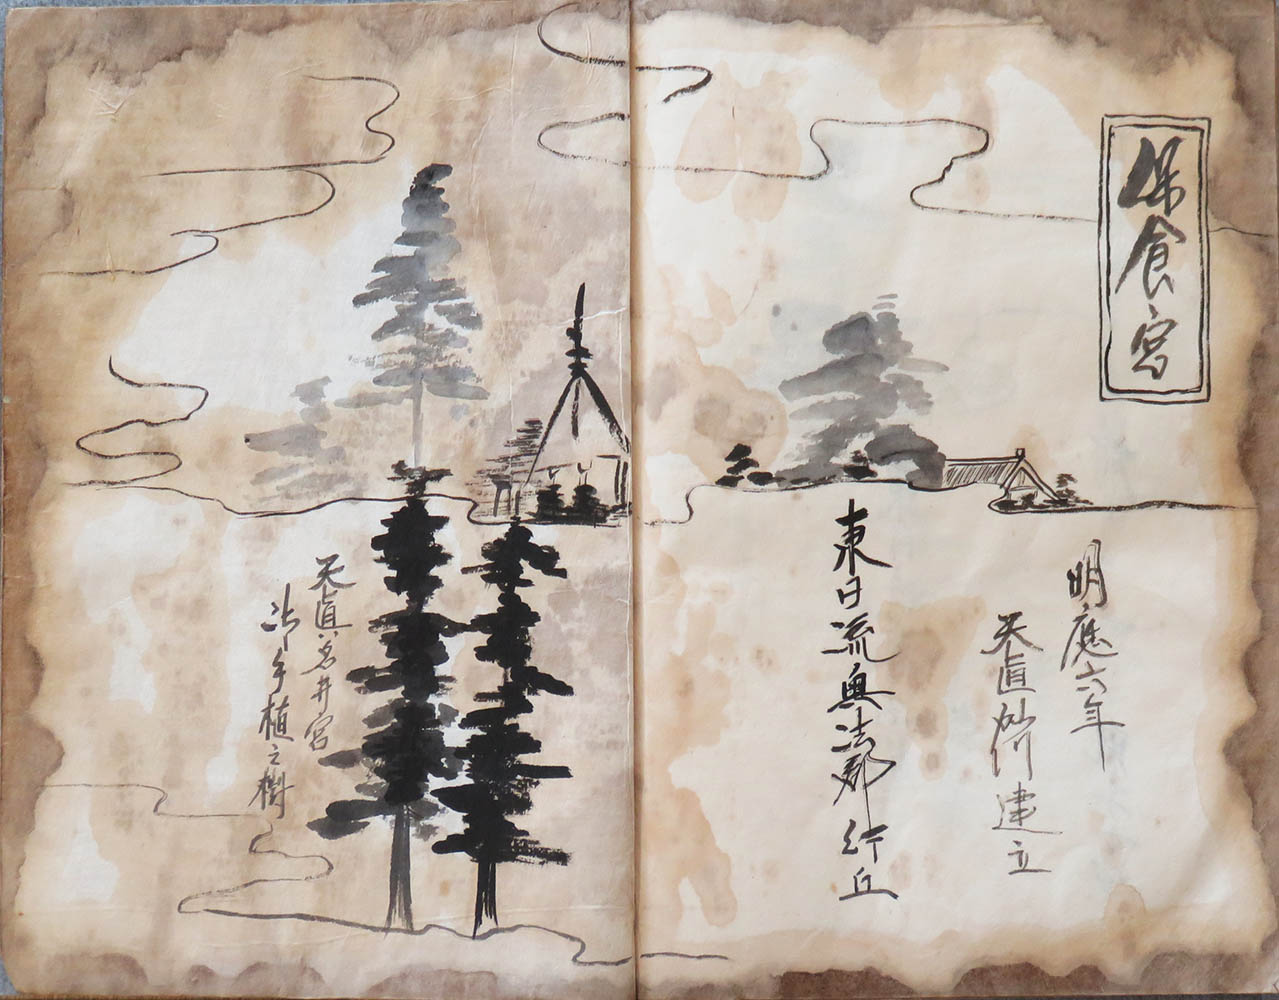 保食宮
明應六年
天眞仙 建立
東日流奥法郡行丘
天眞名井宮
御手植之樹